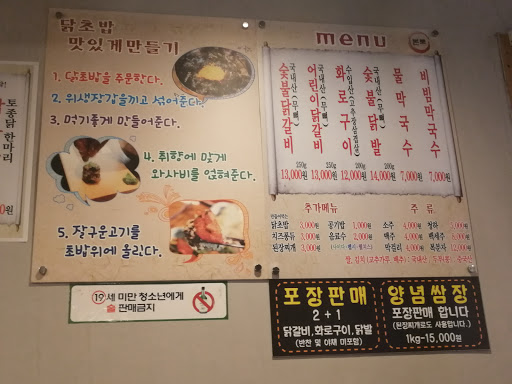 닭초밥
맛있게만들기
1. 닭초밥을 주문한다.
2. 위생장갑을끼고 섞어준다.
3. 먹기좋게 만들어준다.
4. 취향에 맞게
와사비를 얹혀준다.
5. 잘구운고기를
초밥위에 올린다.
menu
숯불닭갈비 국내산(무뼈) 250g 13,000원
어린이닭갈비 국내산(무뼈) 250g 13,000원
화로구이 12,000원
숯불닭발 국내산(무뼈) 14,000원
물막국수 7,000원
비빔막국수 7,000원
추가메뉴
닭초밥 3,000원
치즈퐁듀 3,000원
된장찌개
공기밥 1,000원
음료수 2,000원
주류
소주 4,000원
맥주 4,000원
막걸리 4,000원
청하
백세주
복분자
쌀, 김치(고추가루 배추): 국내산
토종닭 한마리
19세 미만 청소년에게
술 판매금지
포장판매
2+1
닭갈비, 화로구이, 닭발
(반찬 및 야채 미포함)
양념쌈장
포장판매 합니다
(된장찌개로도 사용합니다.)
1kg-15,000원